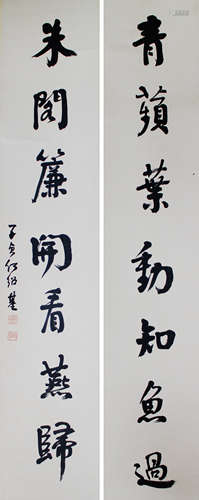 青蘋葉動知魚過
朱閣簾開看燕歸
子貞何紹基